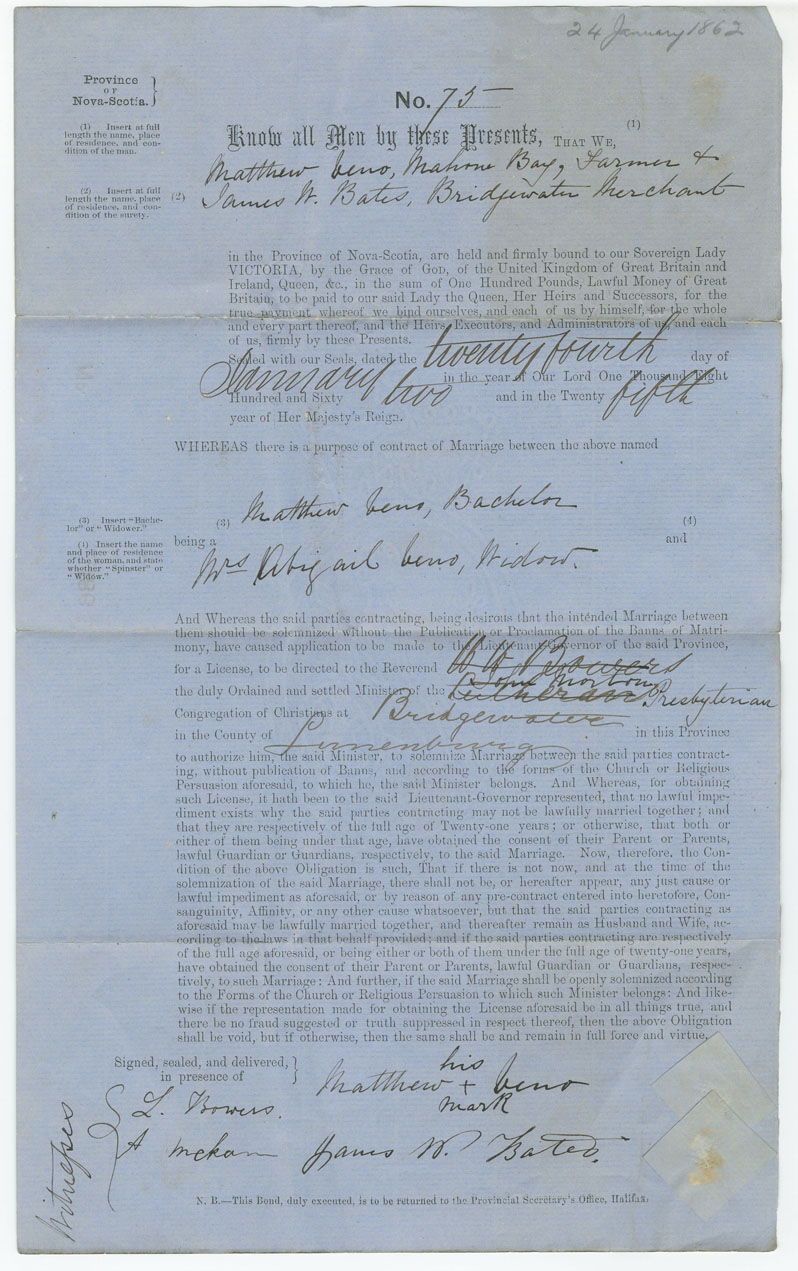 24 January 1862
Province
OF
Nova-Scotia.
No. 75
(1) Insert at full
length the name, place
of residence, and con-
dition of the man.
Know all Men by these Presents, THAT WE, (1)
Matthew Veno, Mahone Bay, Farmer &
(2) Insert at full
length the name, place
of residence, and con-
dition of the surety.
(2) James W. Bates, Bridgewater Merchant
in the Province of Nova-Scotia, are held and firmly bound to our Sovereign Lady
VICTORIA, by the Grace of God, of the United Kingdom of Great Britain and
Ireland, Queen, &c., in the sum of One Hundred Pounds, Lawful Money of Great
Britain, to be paid to our said Lady the Queen, Her Heirs and Successors, for the
true payment whereof we bind ourselves, and each of us by himself, for the whole
and every part thereof, and the Heirs, Executors, and Administrators of us, and each
of us, firmly by these Presents.
Sealed with our Seals, dated the twenty fourth day of
January in the year of Our Lord One Thousand Eight
Hundred and Sixty two and in the Twenty fifth
year of Her Majesty's Reign.
WHEREAS there is a purpose of contract of Marriage between the above named
Matthew Veno, Bachelor
(3) Insert "Bache-
lor" or "Widower."
(3) (4)
being a and
(4) Insert the name
and place of residence
of the woman, and state
whether "Spinster" or
"Widow."
Mrs Abigail Veno, Widow.
And Whereas the said parties contracting, being desirous that the intended Marriage between
them should be solemnized without the Publication or Proclamation of the Banns of Matri-
mony, have caused application to be made to the Lieutenant-Governor of the said Province,
for a License, to be directed to the Reverend W W Bowers
John Morton
the duly Ordained and settled Minister of the Lutheran Presbyterian
Congregation of Christians at Bridgewater
in the County of Lunenburg in this Province
to authorize him, the said Minister, to solemnize Marriage between the said parties contract-
ing, without publication of Banns, and according to the forms of the Church or Religious
Persuasion aforesaid, to which he, the said Minister belongs. And Whereas, for obtaining
such License, it hath been to the said Lieutenant-Governor represented, that no lawful impe-
diment exists why the said parties contracting may not be lawfully married together; and
that they are respectively of the full age of Twenty-one years; or otherwise, that both or
either of them being under that age, have obtained the consent of their Parent or Parents,
lawful Guardian or Guardians, respectively, to the said Marriage. Now, therefore, the Con-
dition of the above Obligation is such, That if there is not now, and at the time of the
solemnization of the said Marriage, there shall not be, or hereafter appear, any just cause or
lawful impediment as aforesaid, or by reason of any pre-contract entered into heretofore, Con-
sanguinity, Affinity, or any other cause whatsoever, but that the said parties contracting as
aforesaid may be lawfully married together, and thereafter remain as Husband and Wife, ac-
cording to the laws in that behalf provided; and if the said parties contracting are respectively
of the full age aforesaid, or being either or both of them under the full age of twenty-one years,
have obtained the consent of their Parent or Parents, lawful Guardian or Guardians, respec-
tively, to such Marriage: And further, if the said Marriage shall be openly solemnized according
to the Forms of the Church or Religious Persuasion to which such Minister belongs: And like-
wise if the representation made for obtaining the License aforesaid be in all things true, and
there be no fraud suggested or truth suppressed in respect thereof, then the above Obligation
shall be void, but if otherwise, then the same shall be and remain in full force and virtue.
Signed, sealed, and delivered,
in presence of
his
Matthew + Veno
mark
L. Bowers.
A
James W. Bates.
Witnesses
N. B.—This Bond, duly executed, is to be returned to the Provincial Secretary's Office, Halifax.